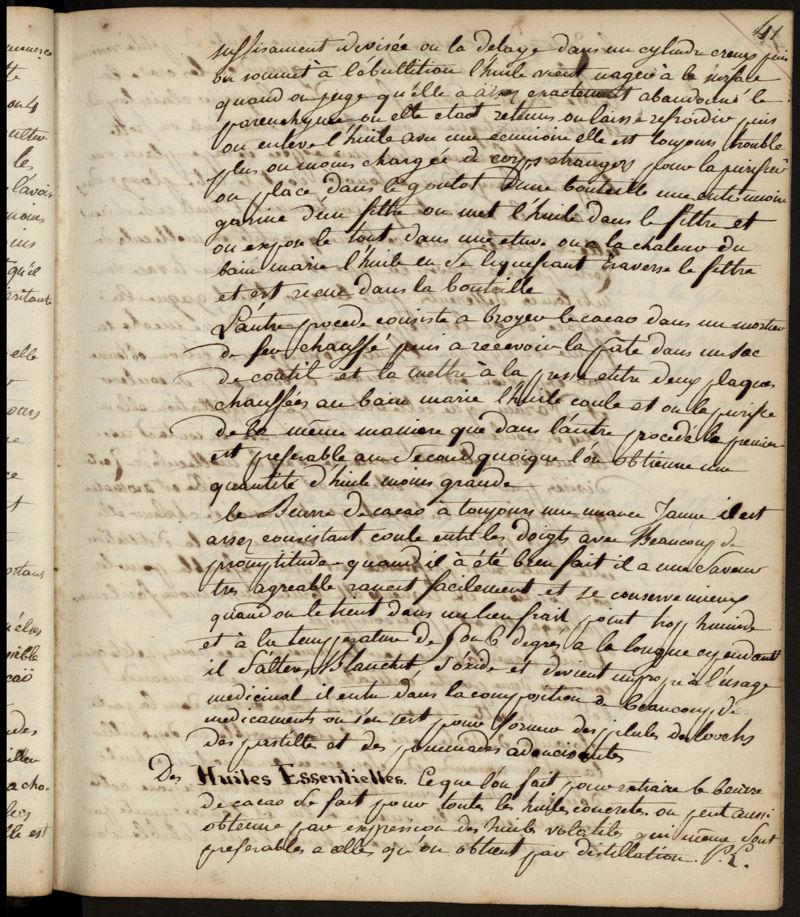 41
suffisament divisée on la delaye dans un cylindre creux puis
on soumet à l'ébullition l'huile vient nager à la surface
quand on juge qu'elle a assez exactement abandonné le
parenchyme ou elle etoit retenue on laisse refroidir puis
on enleve l'huile avec une ecumoire elle est toujours trouble
plus ou moins chargée de corps etrangers pour la purifier
on place dans le goulot d'une bouteille une
garnie d'un filtre on met l'huile dans le filtre et
on expose le tout dans une etuve ou a la chaleur du
bain marie l'huile en se liquefiant traverse le filtre
et est recue dans la bouteille
L'autre procede consiste a broyer le cacao dans un mortier
de fer chauffé puis a recevoir la pâte dans un sac
de coutil et la mettre à la presse entre deux plaques
chauffées au bain marie l'huile coule et on la purifie
de la même maniere que dans l'autre procedé le premier
est preferable au second quoique l'on obtienne une
quantité d'huile moins grande
le Beurre de cacao a toujours une nuance Jaune il est
assez consistant coule entre les doigts avec Beaucoup de
promptitude quand il à été bien fait il a une Saveur
tres agreable rancit facilement et se conserve mieux
quand on le tient dans un lieu frais point trop humide
et à la temperature de 5 ou 6 degrés a la longue cependant
il s'altere Blanchit s'oxide et devient impropre à l'usage
medicinal il entre dans la composition de beaucoup de
medicaments on s'en sert pour former des pilules des loochs
des pastilles et des pommades adoucissantes
Des Huiles Essentielles. Ce que l'on fait pour extraire le beurre
de cacao se fait pour toutes les huiles concretes. on peut aussi
obtenir par expression des huiles volatiles qui même sont
preferables a celles qu'on obtient par distillation.